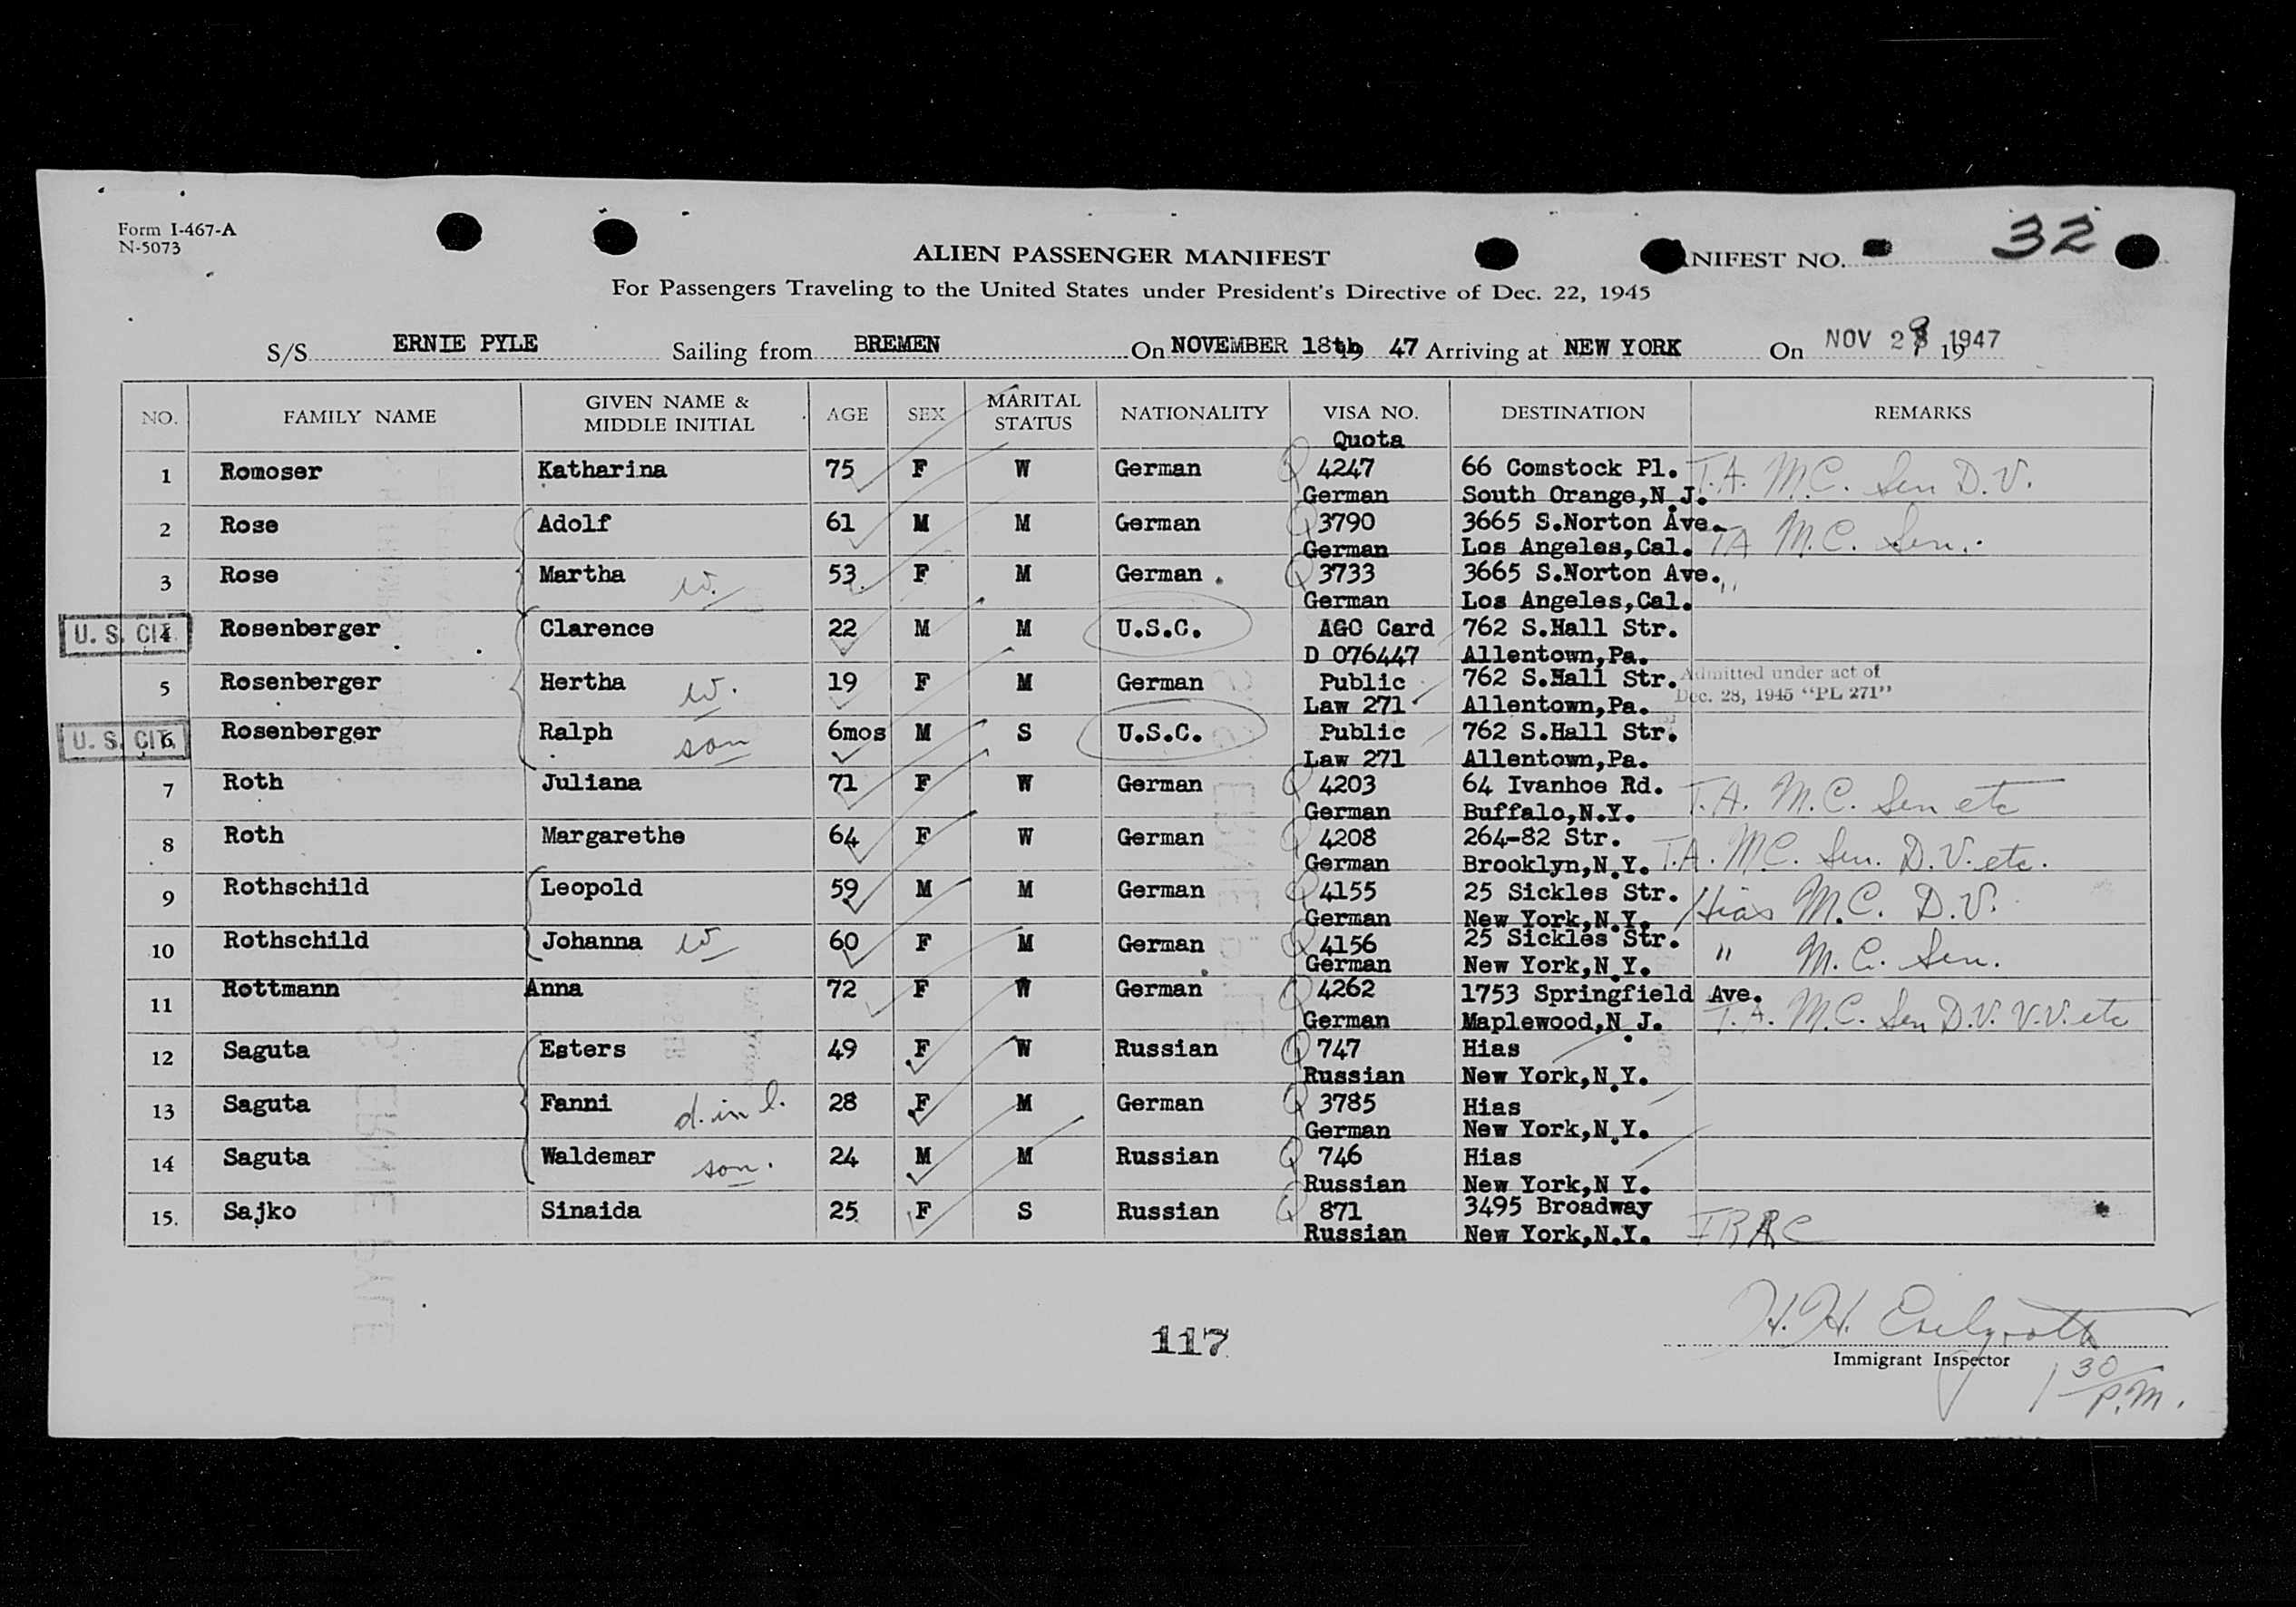 Form I-467-A
N-5073
ALIEN PASSENGER MANIFEST
ANIFEST NO. 32
For Passengers Traveling to the United States under President's Directive of Dec. 22, 1945
S/S ERNIE PYLE Sailing from BREMEN On NOVEMBER 18th 47 Arriving at NEW YORK On NOV 2 1947
NO. FAMILY NAME GIVEN NAME & MIDDLE INITIAL AGE SEX MARITAL STATUS NATIONALITY VISA NO. DESTINATION REMARKS
Quota
1 Romoser Katharina 75 F W German 4247 66 Comstock Pl. T.A. M.C. Sen D.V.
German South Orange,N.J.
2 Rose Adolf 61 M M German 3790 3665 S.Norton Ave.
German Los Angeles,Cal. TA M.C. Sen.
3 Rose Martha w. 53 F M German 3733 3665 S.Norton Ave. "
German Los Angeles,Cal.
U. S. CIT. 4 Rosenberger Clarence 22 M M U.S.C. AGO Card 762 S.Hall Str.
D 076447 Allentown,Pa.
5 Rosenberger Hertha w. 19 F M German Public 762 S.Hall Str. Admitted under act of
Law 271 Allentown,Pa. Dec. 28, 1945 "PL 271"
U. S. CIT. 6 Rosenberger Ralph son 6mos M S U.S.C. Public 762 S.Hall Str.
Law 271 Allentown,Pa.
7 Roth Juliana 71 F W German 4203 64 Ivanhoe Rd. T.A. M.C. Sen etc
German Buffalo,N.Y.
8 Roth Margarethe 64 F W German 4208 264-82 Str.
German Brooklyn,N.Y. T.A. M.C. Sen. D.V. etc.
9 Rothschild Leopold 59 M M German 4155 25 Sickles Str. Hias M.C. D.V.
German New York,N.Y.
10 Rothschild Johanna w 60 F M German 4156 25 Sickles Str. " M.C. Sen.
German New York,N.Y.
11 Rottmann Anna 72 F W German 4262 1753 Springfield Ave.
German Maplewood,N.J. T.A. M.C. Sen D.V. V.V. etc
12 Saguta Esters 49 F W Russian 747 Hias
Russian New York,N.Y.
13 Saguta Fanni d. in l. 28 F M German 3785 Hias
German New York,N.Y.
14 Saguta Waldemar son. 24 M M Russian 746 Hias
Russian New York,N.Y.
15. Sajko Sinaida 25 F S Russian 871 3495 Broadway
Russian New York,N.Y.
117
H. H.
Immigrant Inspector
1 30 P.M.